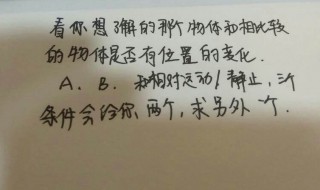 看你想了解的那个物体和相比较
的物体是否有位置的变化.
A. B. 和相对运动/静止,三个
条件会给你两个,求另外一个.